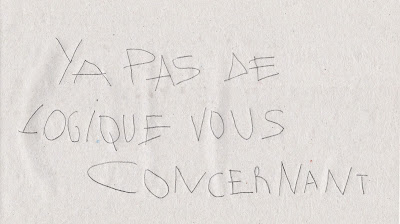 YA PAS DE
LOGIQUE VOUS
CONCERNANT